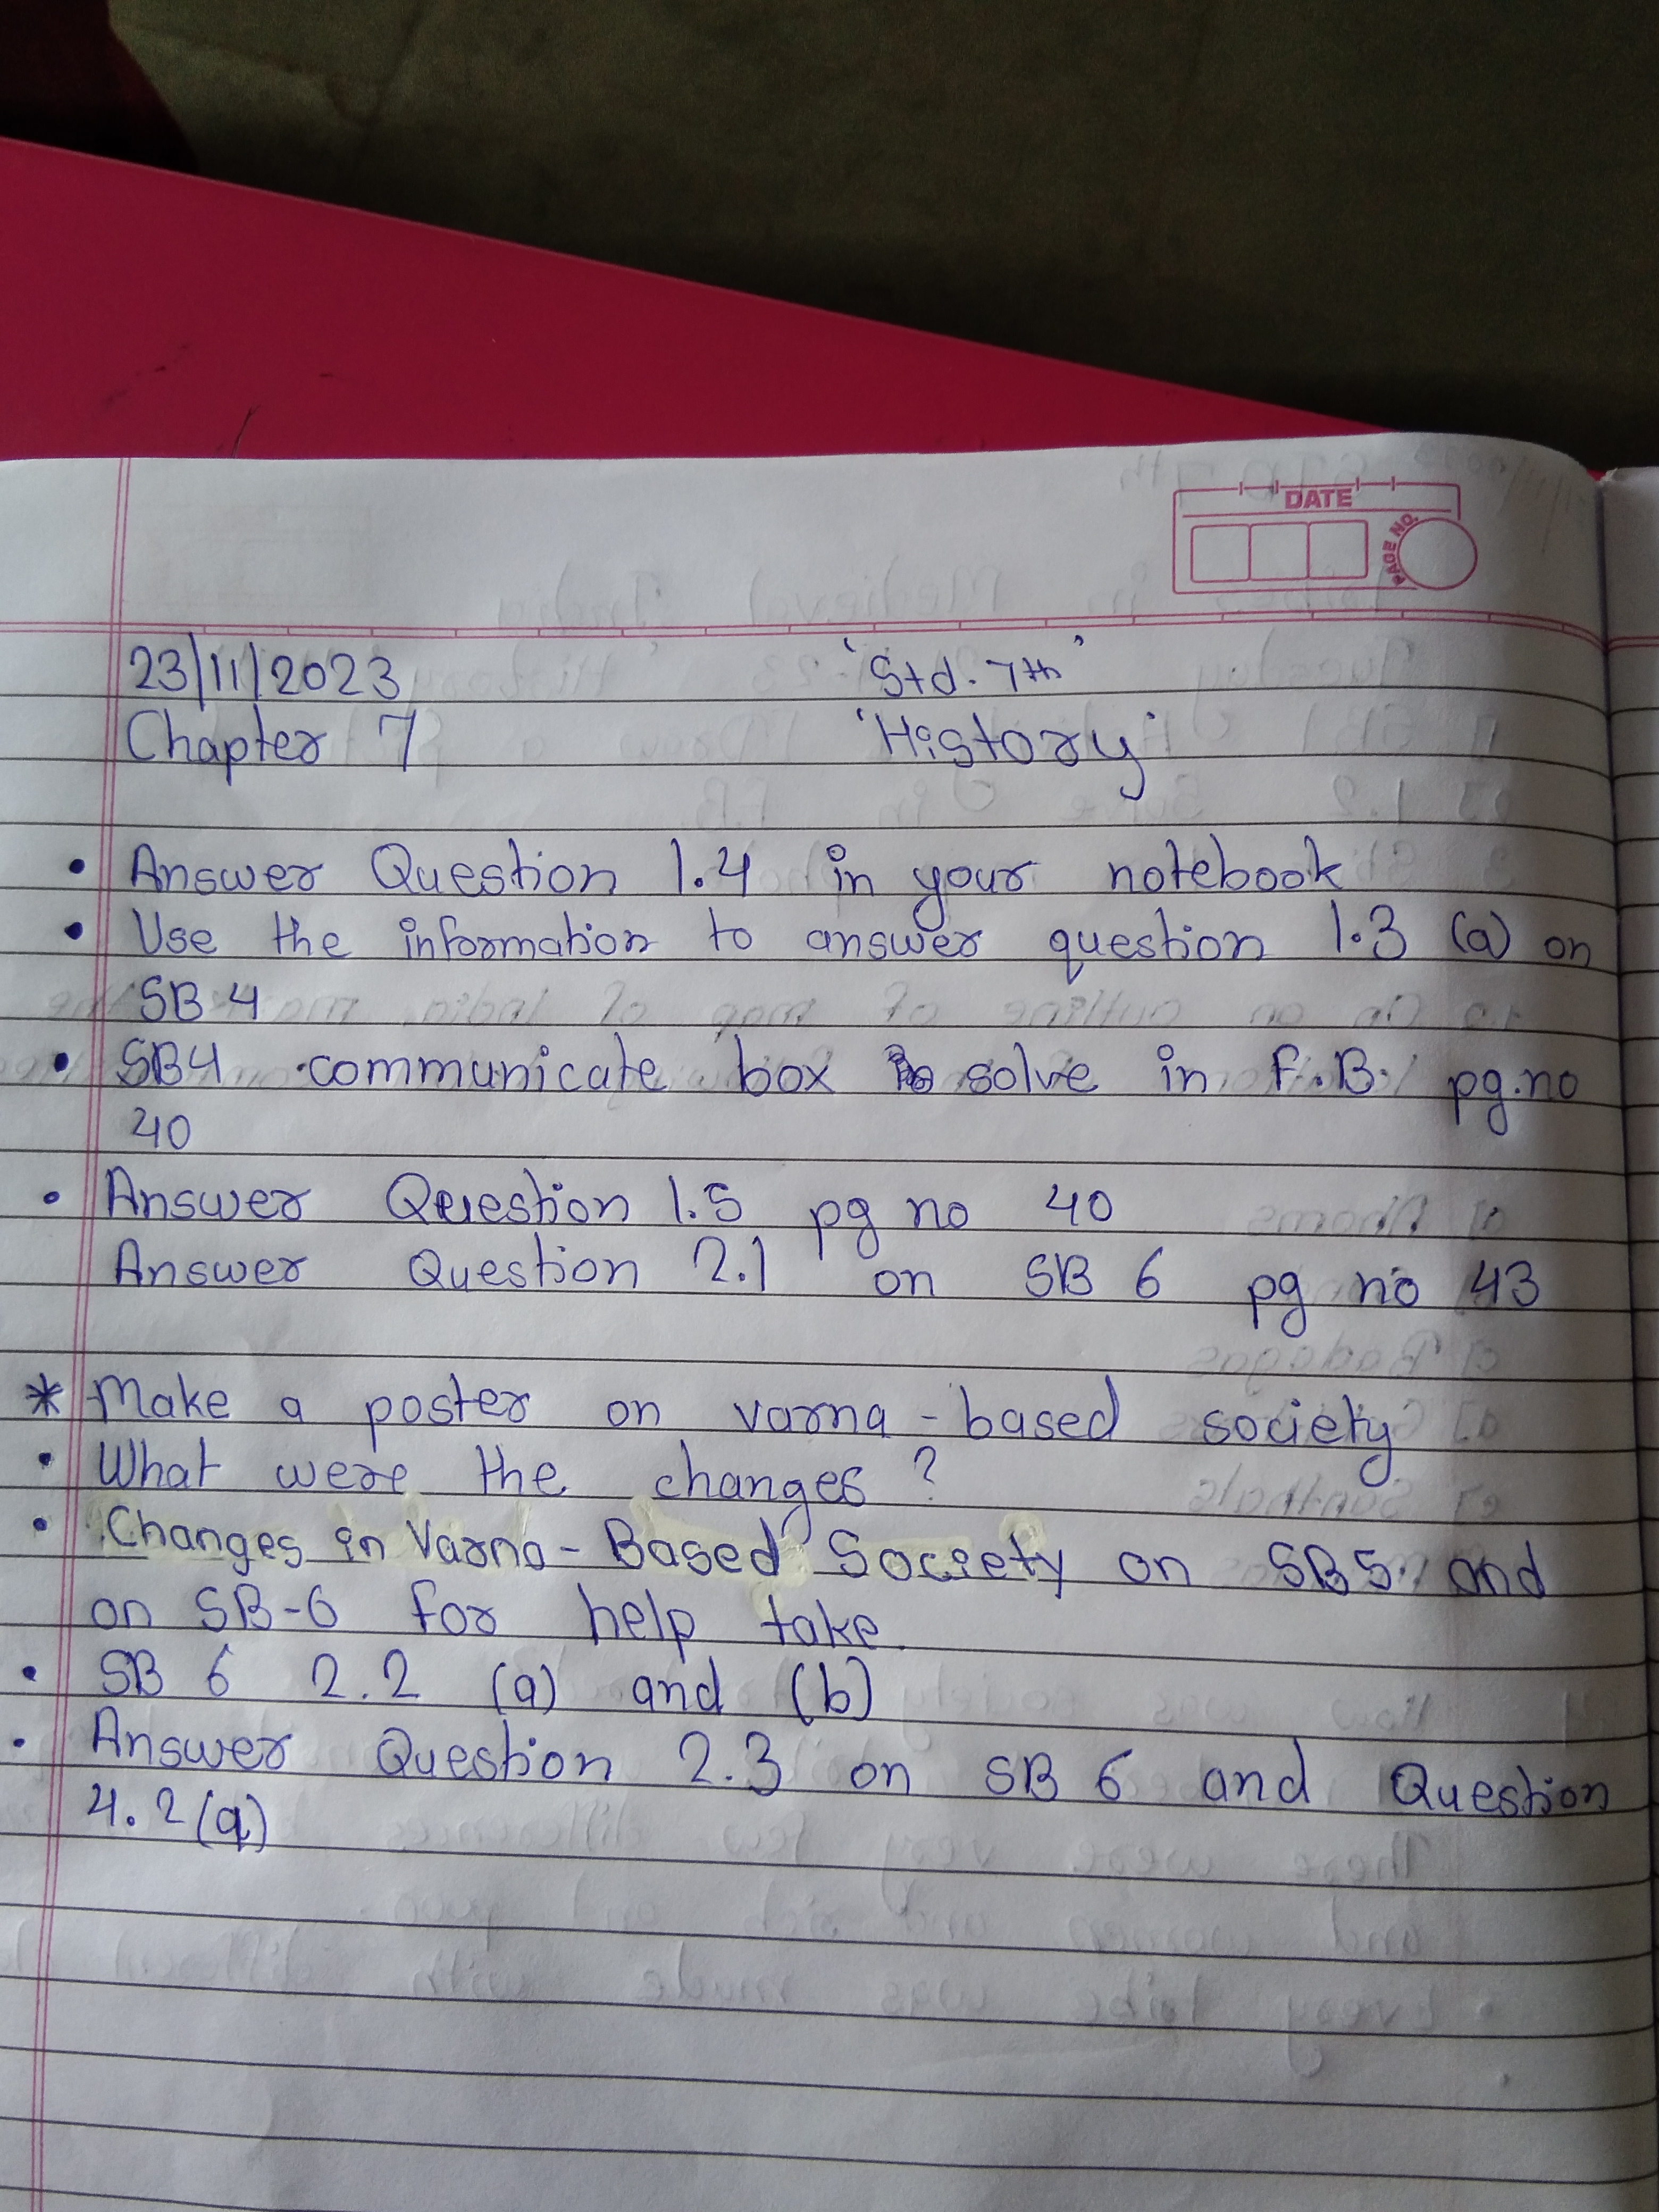 DATE
PAGE NO.
23/11/2023 'Std. 7th'
Chapter 7 'History'
• Answer Question 1.4 in your notebook
• Use the information to answer question 1.3 (a) on
SB4
• SB4 communicate box solve in F.B. pg.no
40
• Answer Question 1.5 pg no 40
Answer Question 2.1 on SB 6 pg no 43
* Make a poster on varna-based society
• What were the changes?
• Changes in Varna-Based Society on SB5 and
on SB-6 for help take.
• SB 6 2.2 (a) and (b)
• Answer Question 2.3 on SB 6 and Question
4.2(a)